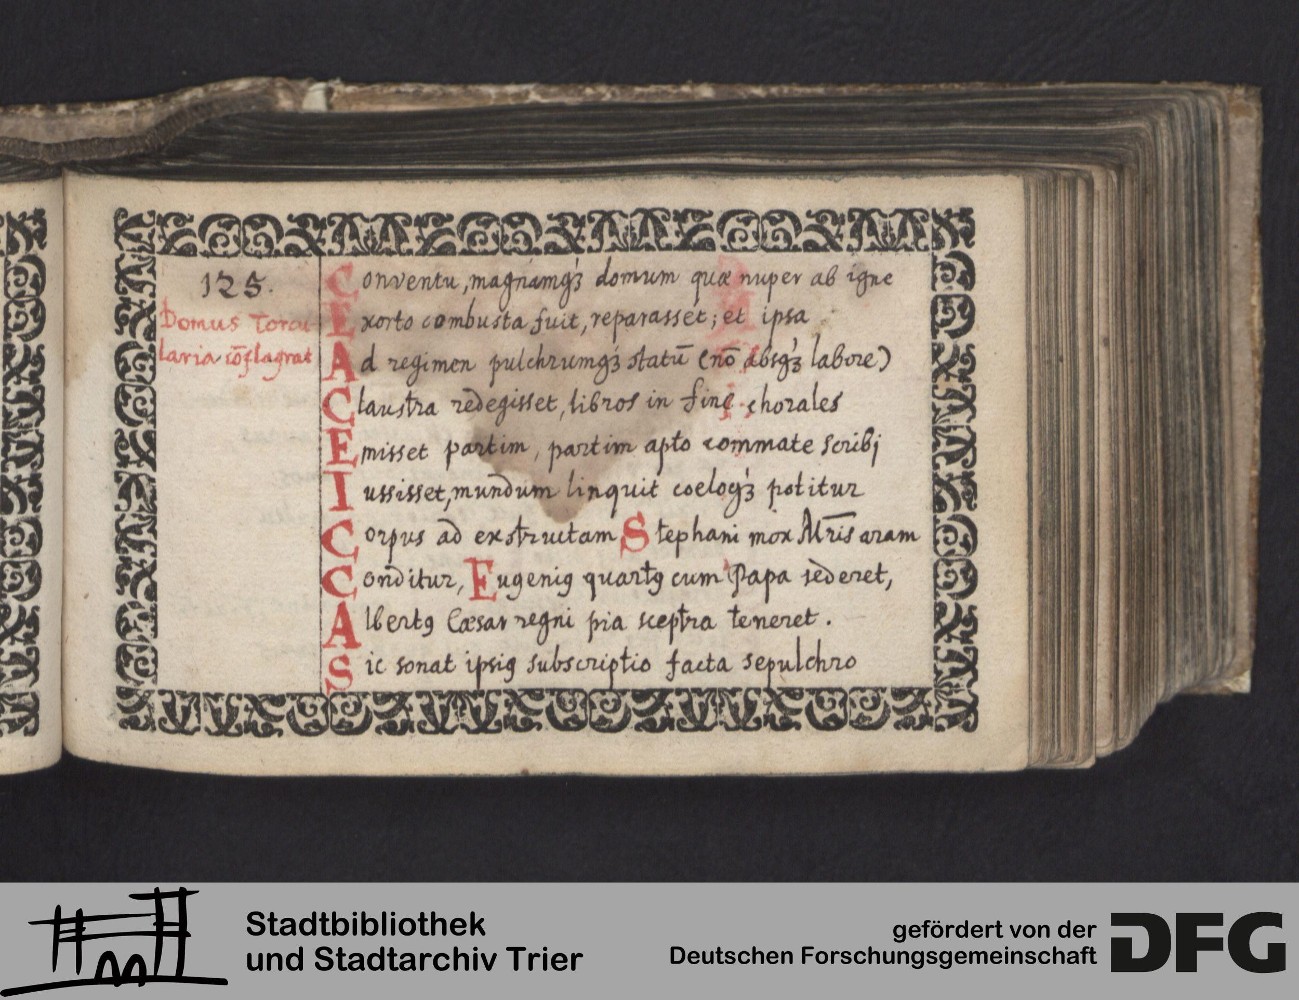 125.
Domus Torcu
laria cõflagrat
Conventu, magnamqꝫ domum quæ nuper ab igne
Exorto combusta fuit, reparasset; et ipsa
Ad regimen pulchrumqꝫ statũ (nõ absqꝫ labore)
Claustra redegisset, libros in fine chorales
Emisset partim, partim apto commate scribj
Iussisset, mundum linquit coeloqꝫ potitur
Corpus ad exstructam Stephani mox Mr̃is aram
Conditur, Eugeniꝰ quartꝰ cum Papa sederet,
Albertꝰ Cæsar regni pia sceptra teneret.
Sic sonat ipsiꝰ subscriptio facta sepulchro
Stadtbibliothek
und Stadtarchiv Trier
gefördert von der
Deutschen Forschungsgemeinschaft
DFG